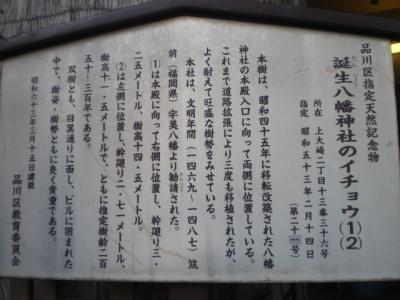 品川区指定天然記念物
たんじょう
誕生八幡神社のイチョウ(1)(2)
所在 上大崎二丁目十三番三十六号
指定 昭和五十三年二月十四日
(第二十一号)
本樹は、昭和四十五年に移転改築された八幡
神社の本殿入口に向って両側に位置している。
これまで道路拡張により三度も移植されたが、
よく耐えて旺盛な樹勢をみせている。
本社は、文明年間(一四六九〜一四八七)筑
前(福岡県)宇美八幡より勧請された。
(1)は本殿に向って右側に位置し、幹廻り三・
二五メートル、樹高十四・五メートル。
(2)は左側に位置し、幹廻り二・七一メートル、
樹高十一・五メートルで、ともに推定樹齢二百
五十〜三百年である。
双樹とも、目黒通りに面し、ビルに囲まれた
中で、樹姿・樹勢ともに良く貴重である。
昭和六十三年三月十五日建設
品川区教育委員会